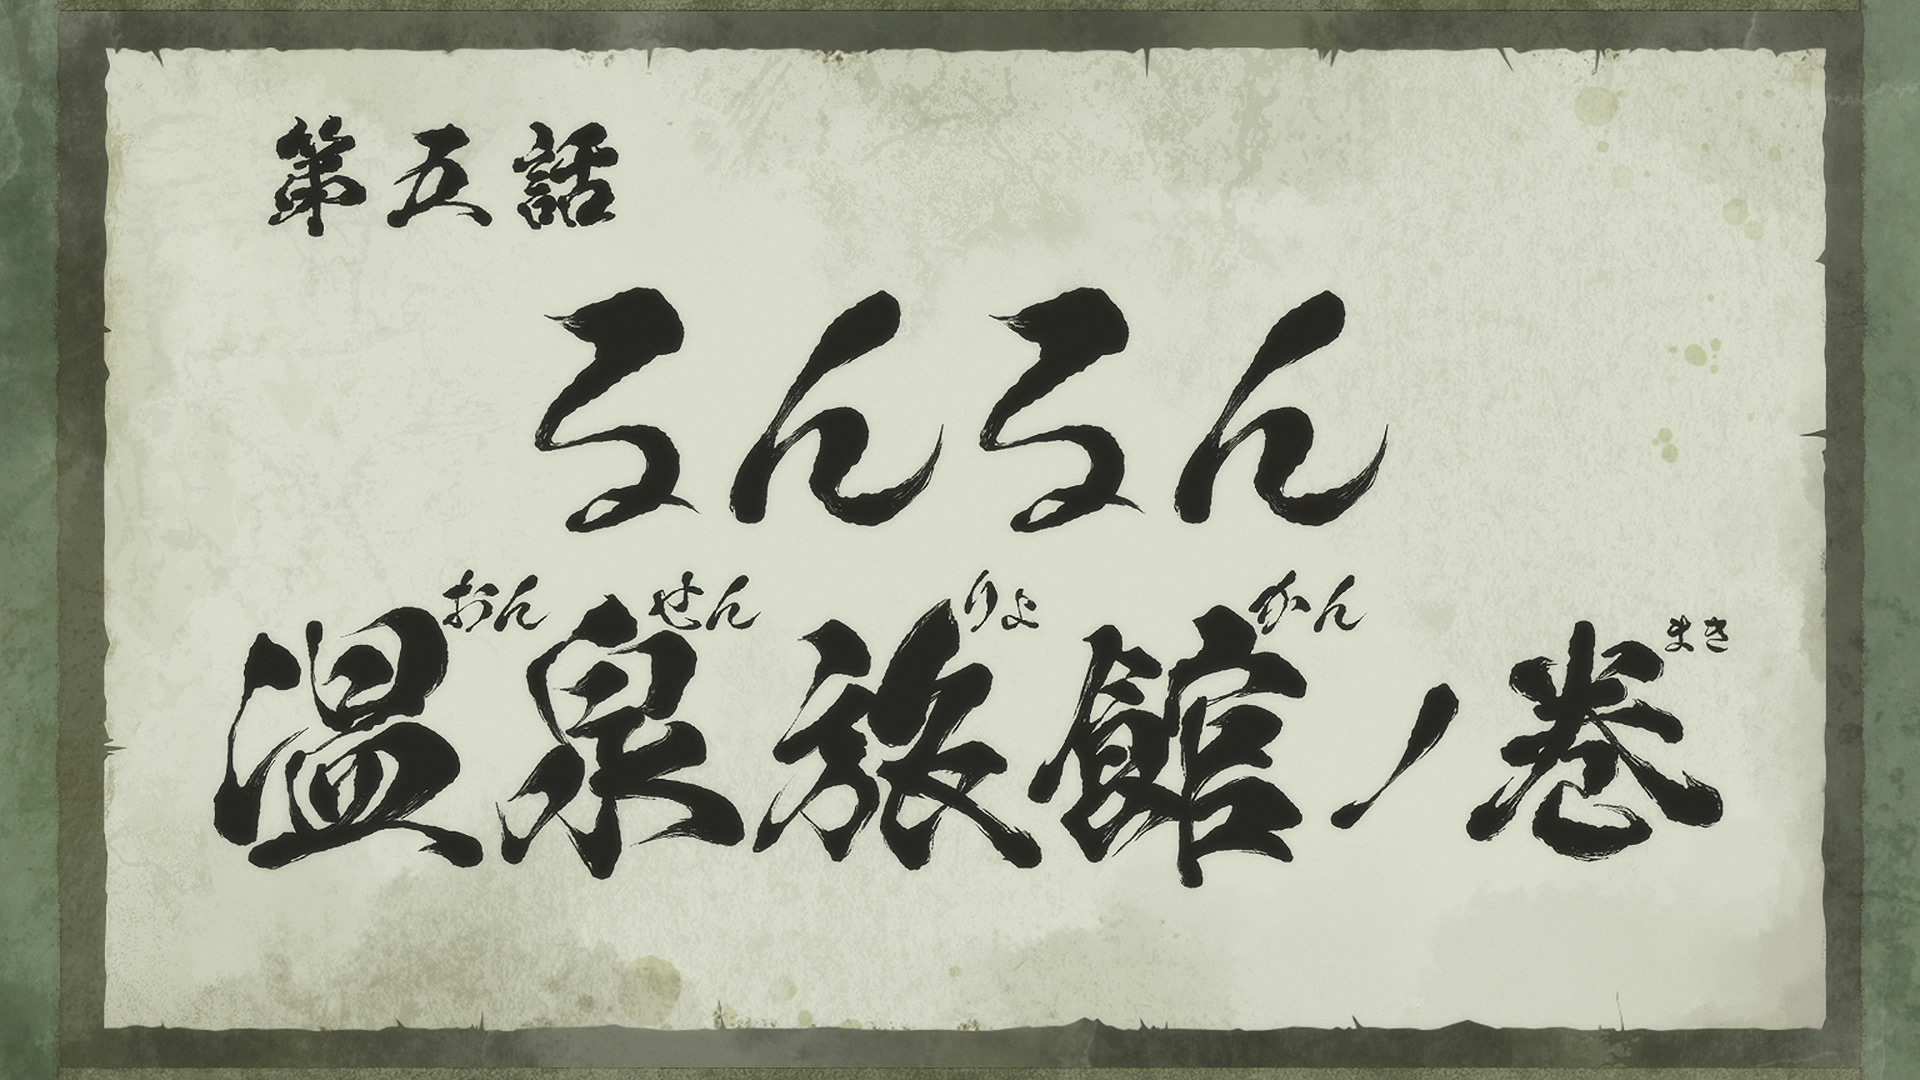 第五話
るんるん
おんせんりょかん まき
温泉旅館ノ巻